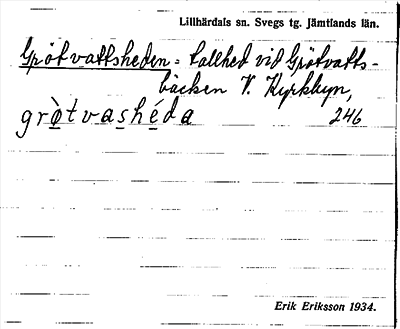 Lillhärdals sn. Svegs tg. Jämtlands län.
Grötvattsheden = tallhed vid Grötvatts-
bäcken V. Kyrkbyn,
gròtvashéda 246
Erik Eriksson 1934.